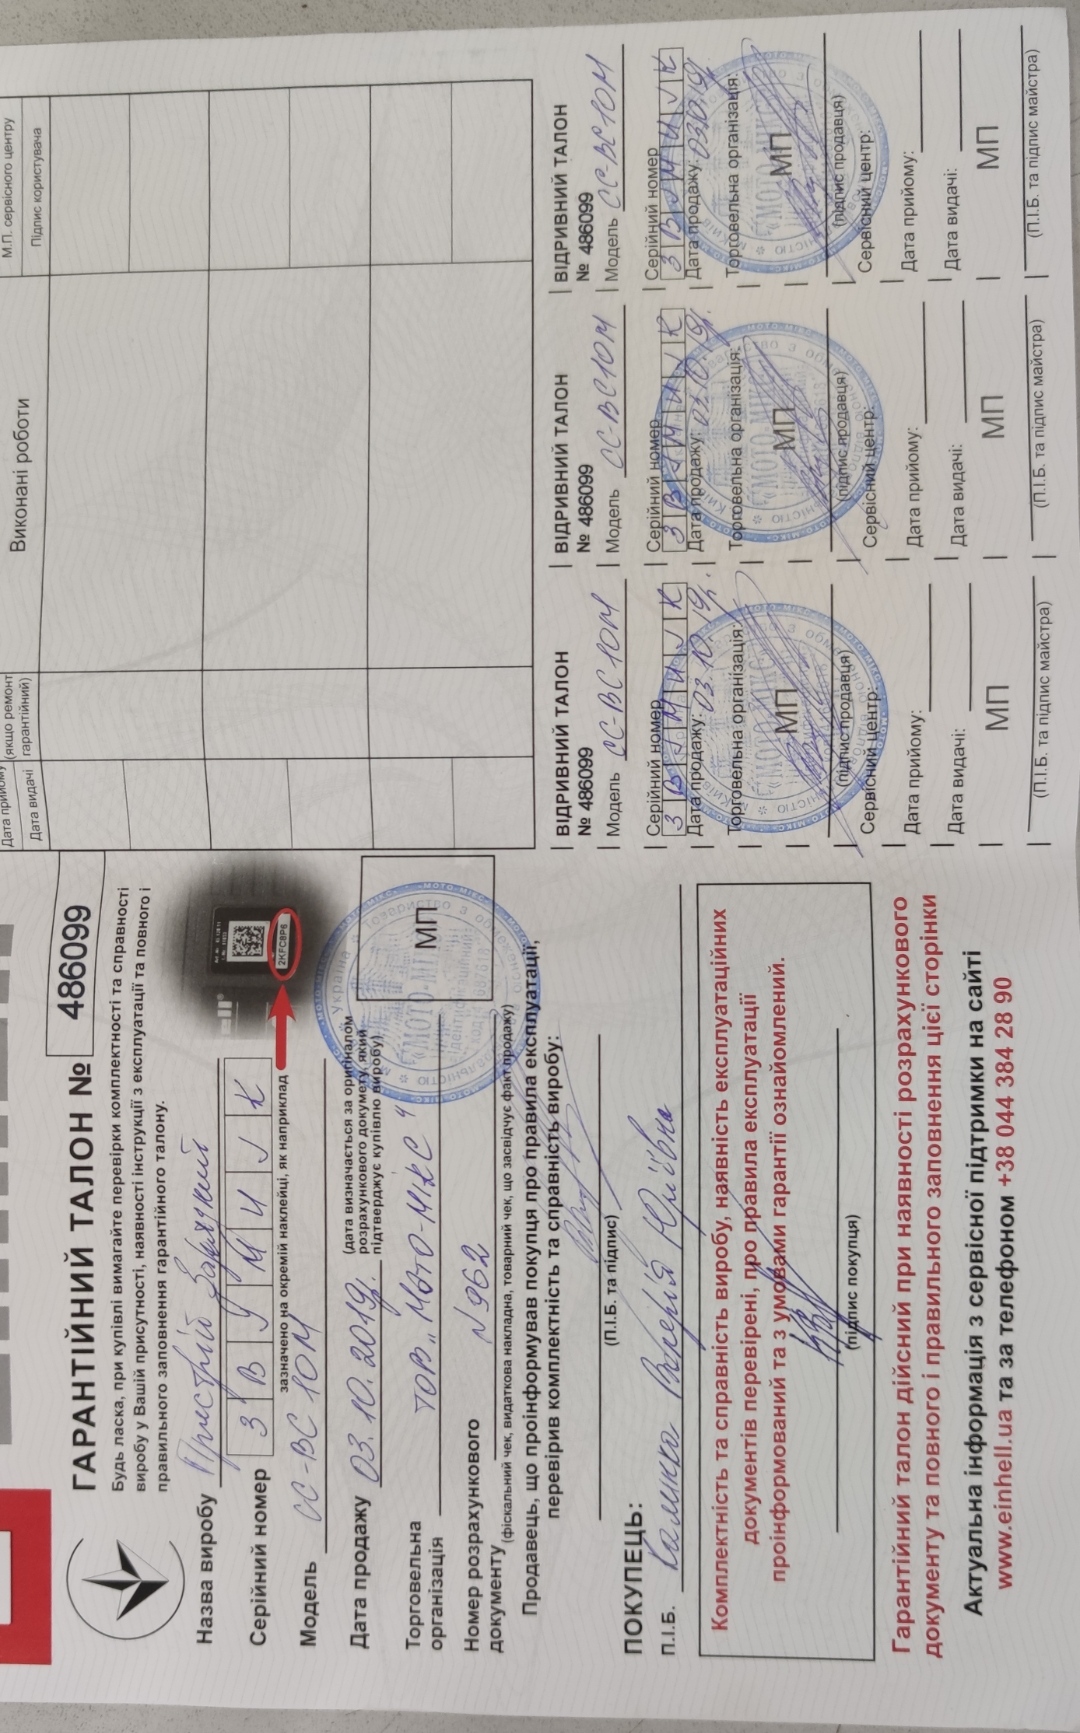 ГАРАНТІЙНИЙ ТАЛОН № 486099
Будь ласка, при купівлі вимагайте перевірки комплектності та справності
виробу у Вашій присутності, наявності інструкції з експлуатації та повного і
правильного заповнення гарантійного талону.
Назва виробу Пристрій Зарядний
Серійний номер З В У М И J К
зазначено на окремій наклейці, як наприклад
2KFC8P6
Модель CC-BC 10M
Дата продажу 03.10.2019р.
(дата визначається за оригіналом
розрахункового документу, який
підтверджує купівлю виробу)
Торговельна
організація ТОВ „Мото-Мікс"
МП
Номер розрахункового
документу N 962
(фіскальний чек, видаткова накладна, товарний чек, що засвідчує факт продажу)
Продавець, що проінформував покупця про правила експлуатації,
перевірив комплектність та справність виробу:
(П.І.Б. та підпис)
ПОКУПЕЦЬ:
П.І.Б. Валерія Юріївна
Комплектність та справність виробу, наявність експлуатаційних
документів перевірені, про правила експлуатації
проінформований та з умовами гарантії ознайомлений.
(підпис покупця)
Гарантійний талон дійсний при наявності розрахункового
документу та повного і правильного заповнення цієї сторінки
Актуальна інформація з сервісної підтримки на сайті
www.einhell.ua та за телефоном +38 044 384 28 90
Дата прийому
Дата видачі
(якщо ремонт
гарантійний)
Виконані роботи
М.П. сервісного центру
Підпис користувача
ВІДРИВНИЙ ТАЛОН
№ 486099
Модель CC-BC10M
Серійний номер
З В У М И J К
Дата продажу: 03.10.19р.
Торговельна організація:
«МОТО-МІКС»
МП
(підпис продавця)
Сервісний центр:
Дата прийому:
Дата видачі:
МП
(П.І.Б. та підпис майстра)
ВІДРИВНИЙ ТАЛОН
№ 486099
Модель CC-BC10M
Серійний номер
З В У М И J К
Дата продажу: 03.10.19р.
Торговельна організація:
«МОТО-МІКС»
МП
(підпис продавця)
Сервісний центр:
Дата прийому:
Дата видачі:
МП
(П.І.Б. та підпис майстра)
ВІДРИВНИЙ ТАЛОН
№ 486099
Модель CC-BC10M
Серійний номер
З В У М И J К
Дата продажу: 03.10.19р.
Торговельна організація:
«МОТО-МІКС»
МП
(підпис продавця)
Сервісний центр:
Дата прийому:
Дата видачі:
МП
(П.І.Б. та підпис майстра)